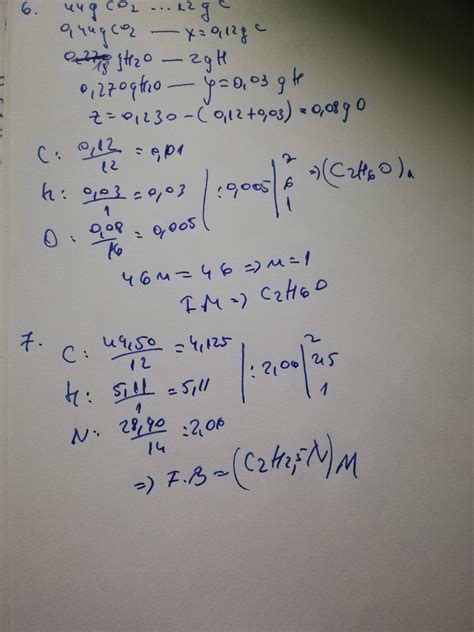 6. 44g CO2 ... 12g C
0,44g CO2 — x=0,12g C
0,270 18 gH2O — 2gH
0,270gH2O — y=0,03 gH
z=0,230-(0,12+0,03)=0,08gO
C: 0,12/12 = 0,01
H: 0,03/1 = 0,03 | :0,005 | 2 6 1 => (C2H6O)n
O: 0,08/16 = 0,005
46n = 46 => n=1
F.M => C2H6O
7. C: 49,50/12 = 4,125
H: 5,11/1 = 5,11 | :2,06 | 2 2,5 1
N: 28,90/14 : 2,06
=> F.B = (C2H2,5N)M